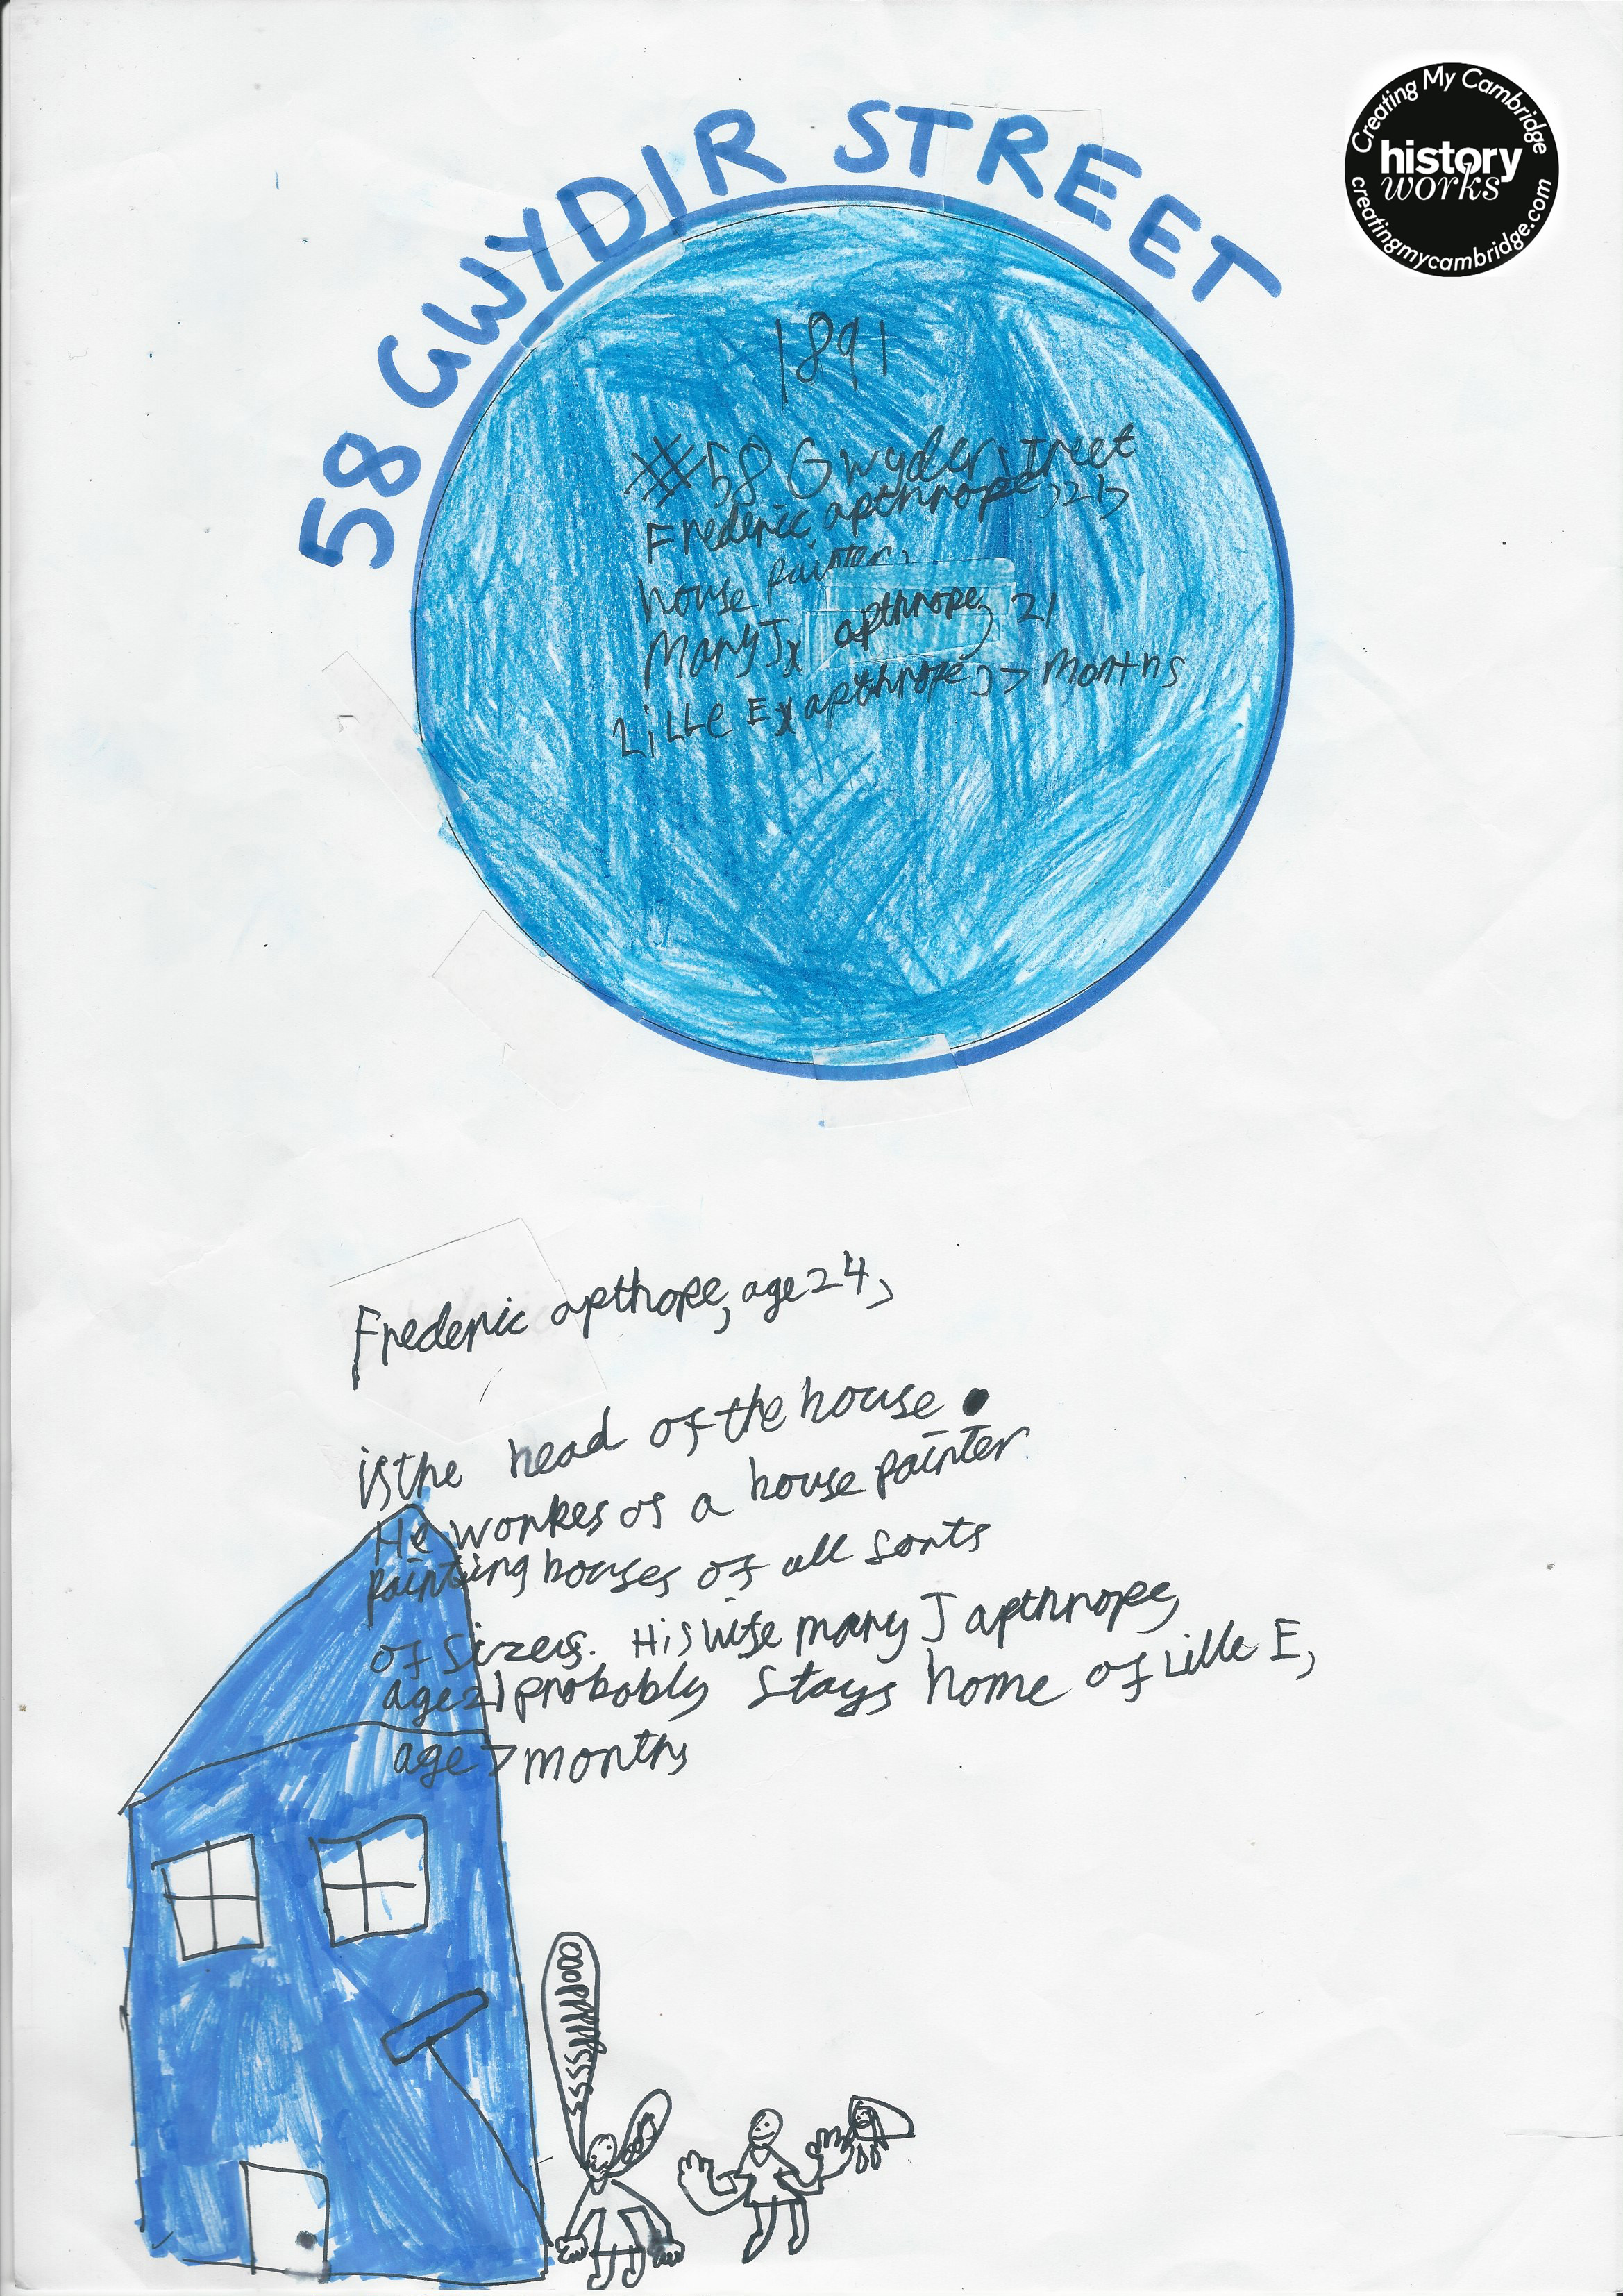 Creating My Cambridge
history
works
creatingmycambridge.com
58 GWYDIR STREET
1891
#58 Gwyder street
Frederic apthrope, 21,
house painter,
Mary J, apthrope, 21
Lille E, apthrope, 7 months
Frederic apthrope, age 24,
is the head of the house.
He workes as a house painter
painting houses of all sorts
of sizes. His wife mary J apthrope,
age 21 probably stays home of Lille E,
age 7 months